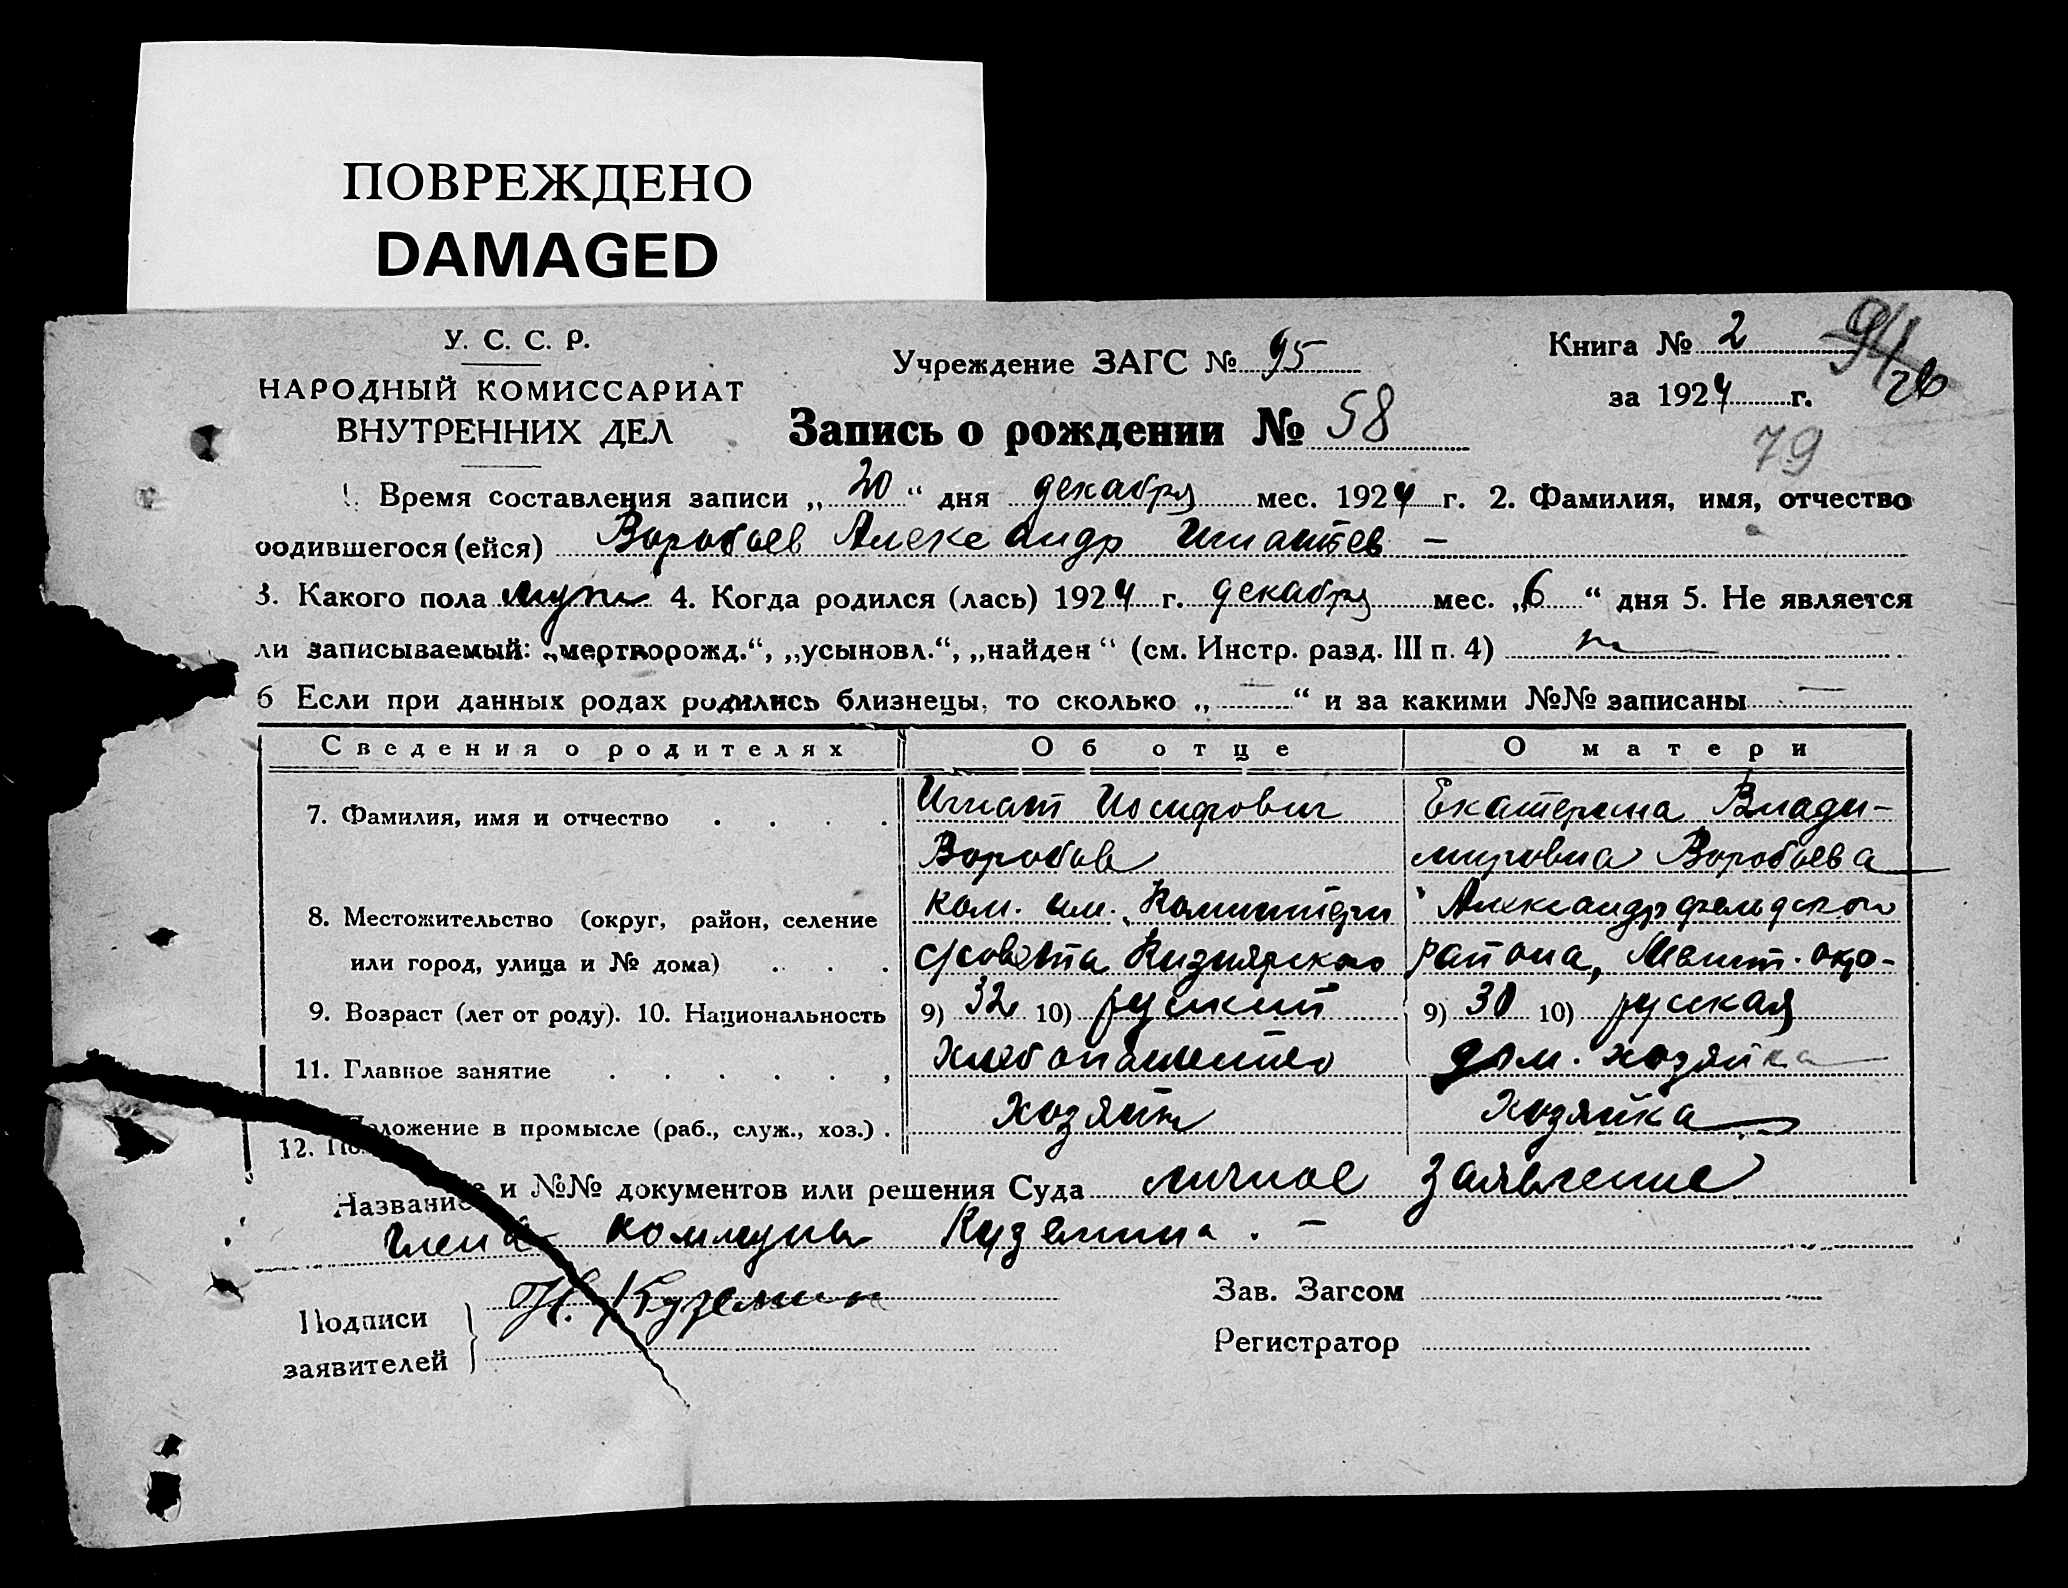 ПОВРЕЖДЕНО
DAMAGED
У. С. С. Р.
НАРОДНЫЙ КОМИССАРИАТ
ВНУТРЕННИХ ДЕЛ
Учреждение ЗАГС № 95
Запись о рождении № 58
Книга № 2
за 1924 г.
79
1. Время составления записи „20“ дня декабря мес. 1924 г. 2. Фамилия, имя, отчество
родившегося (ейся) Воробьев Александр Игнатьев –
3. Какого пола муж 4. Когда родился (лась) 1924 г. декабря мес. „6“ дня 5. Не является
ли записываемый: „мертворожд.“, „усыновл.“, „найден“ (см. Инстр. разд. III п. 4)
6 Если при данных родах родились близнецы, то сколько „ — “ и за какими №№ записаны —
Сведения о родителях Об отце О матери
7. Фамилия, имя и отчество . . . . Игнат Иосифович Екатерина Влади-
Воробьев мировна Воробьева
8. Местожительство (округ, район, селение ком. им. Коминтерн Александрфельдского
или город, улица и № дома) . . . с/совета Кизиярского района, Мелит. окр-
9. Возраст (лет от роду). 10. Национальность 9) 32 10) русский 9) 30 10) русская
11. Главное занятие . . . . . , Хлебопашество дом. хозяйка
12. Положение в промысле (раб., служ., хоз.) . Хозяин Хозяйка
Название и №№ документов или решения Суда личное заявление
члена коммуны Куземина . –
Подписи
заявителей
Н. Куземин
Зав. Загсом
Регистратор